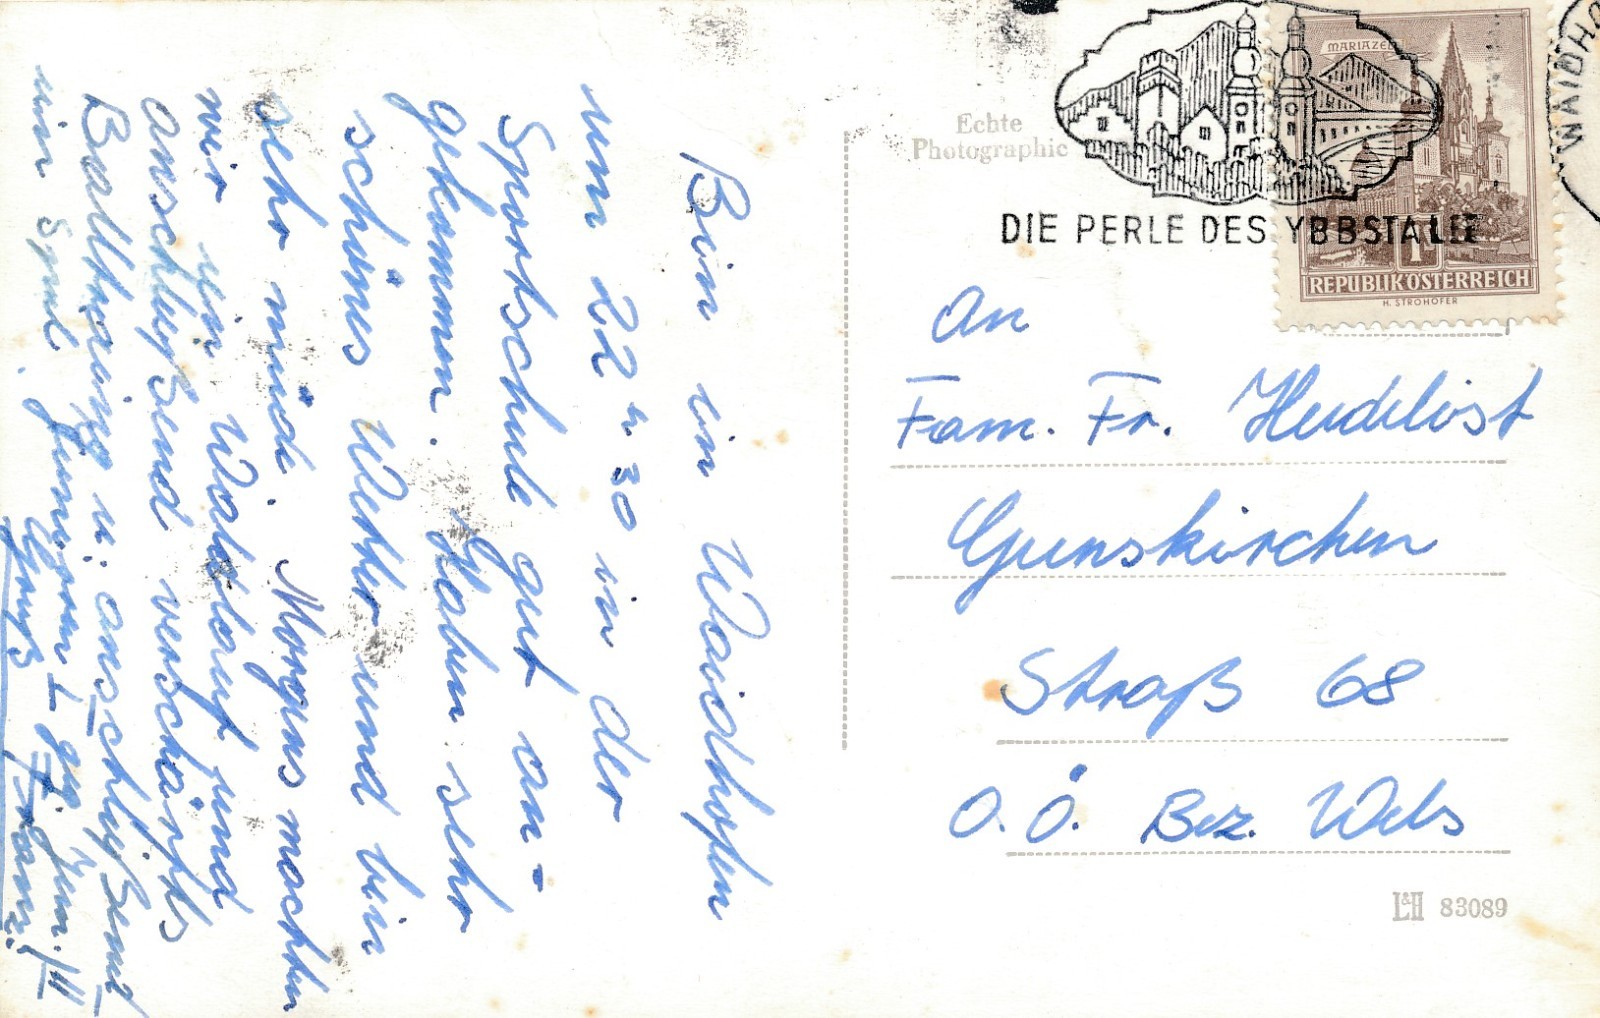 Bin in Waidhofen
um 22 h. 30 in der
Sportschule gut an-
gekommen. Haben sehr
schönes Wetter und bin
sehr müde. Morgens machten
wir ein Waldlauf und
anschließend verschärfts
Balltraining u. anschließend
ein Spiel. Junioren I geg. Jun. II
Gruß
Franz!
Echte
Photographie
DIE PERLE DES YBBSTALES
MARIAZELL
1
REPUBLIK ÖSTERREICH
H. STROHOFER
WAIDHO
An
Fam. Fr.
Gunskirchen
Straß 68
O.Ö. Bez. Wels
L&H 83089